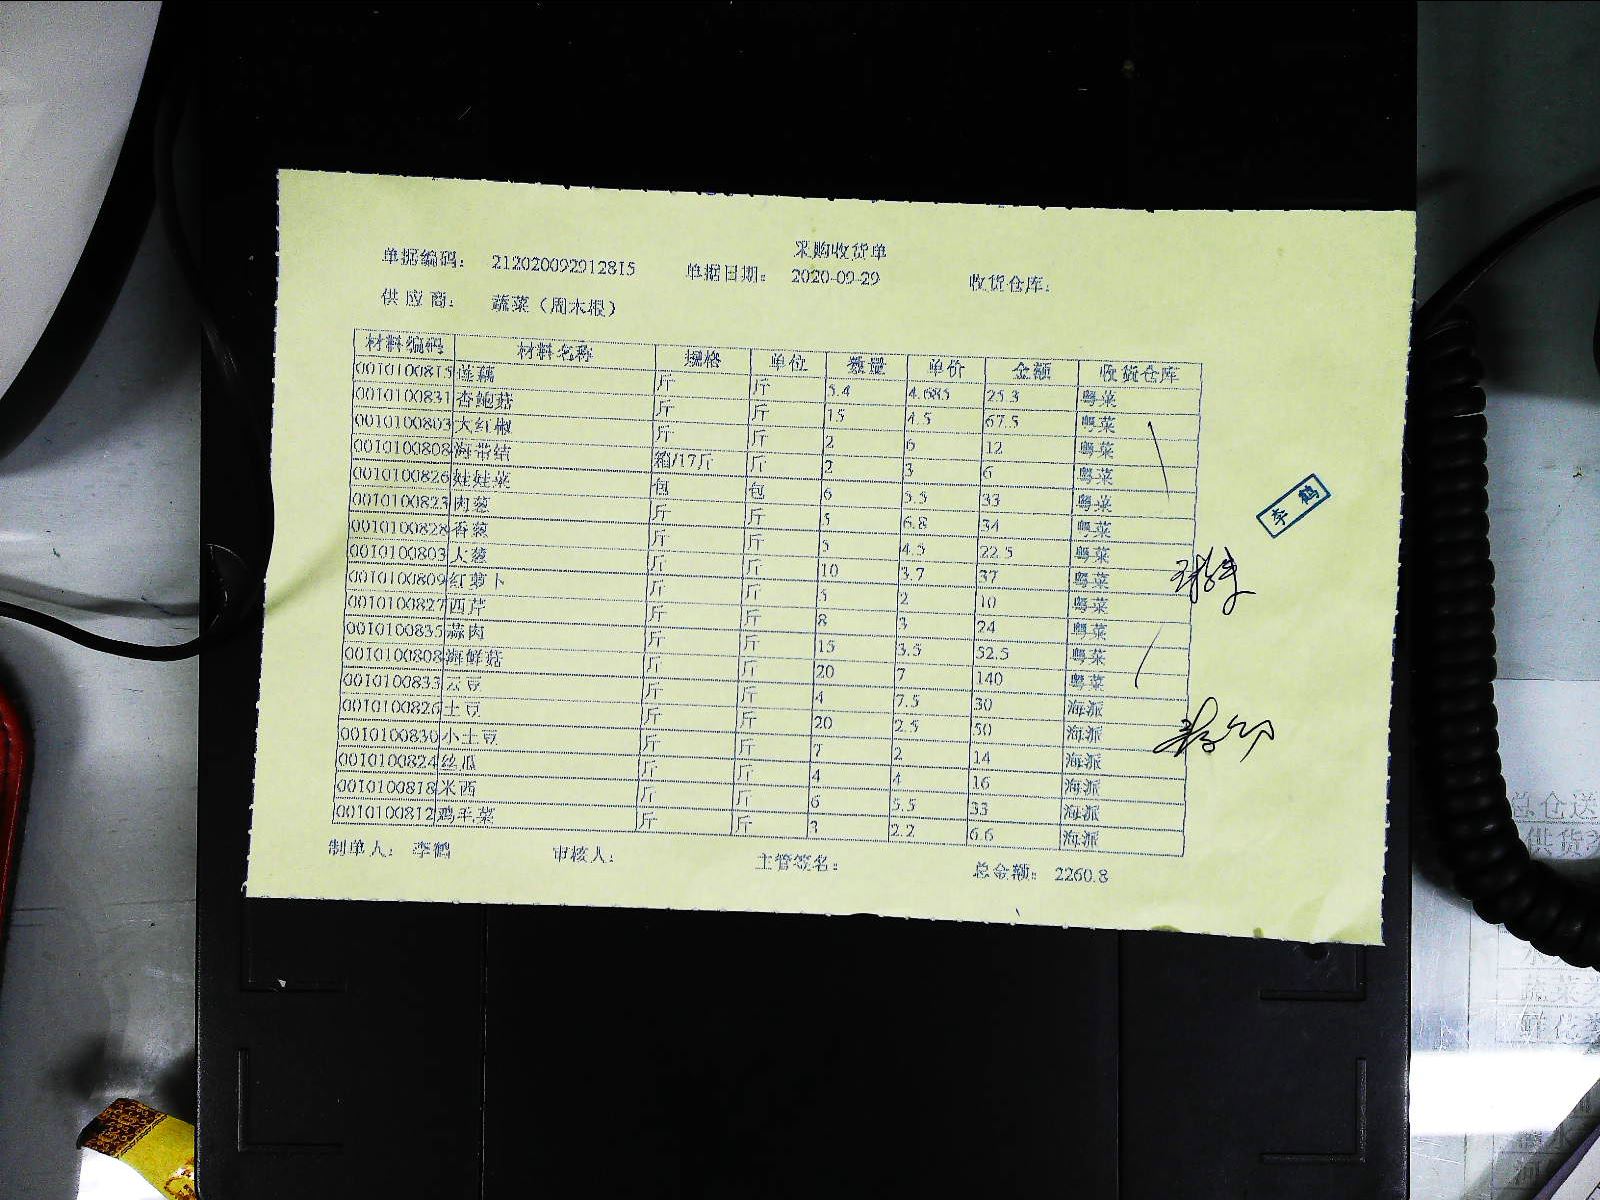 采购收货单
单据编码： 212020092912815 单据日期： 2020-09-29 收货仓库：
供 应 商： 蔬菜（周木根）
材料编码 材料名称 规格 单位 数量 单价 金额 收货仓库
0010100815 莲藕 斤 斤 5.4 4.685 25.3 粤菜
0010100831 杏鲍菇 斤 斤 15 4.5 67.5 粤菜
0010100803 大红椒 斤 斤 2 6 12 粤菜
0010100808 海带结 箱/17斤 斤 2 3 6 粤菜
0010100826 娃娃菜 包 包 6 5.5 33 粤菜
0010100823 肉葱 斤 斤 5 6.8 34 粤菜
0010100828 香葱 斤 斤 5 4.5 22.5 粤菜
0010100803 大葱 斤 斤 10 3.7 37 粤菜
0010100809 红萝卜 斤 斤 5 2 10 粤菜
0010100827 西芹 斤 斤 8 3 24 粤菜
0010100835 蒜肉 斤 斤 15 3.5 52.5 粤菜
0010100808 海鲜菇 斤 斤 20 7 140 粤菜
0010100833 云豆 斤 斤 4 7.5 30 海派
0010100826 土豆 斤 斤 20 2.5 50 海派
0010100830 小土豆 斤 斤 7 2 14 海派
0010100824 丝瓜 斤 斤 4 4 16 海派
0010100818 米西 斤 斤 6 5.5 33 海派
0010100812 鸡毛菜 斤 斤 3 2.2 6.6 海派
制单人： 李鹤 审核人： 主管签名： 总金额： 2260.8
李 鹤
总仓送
供货
蔬菜
鲜化